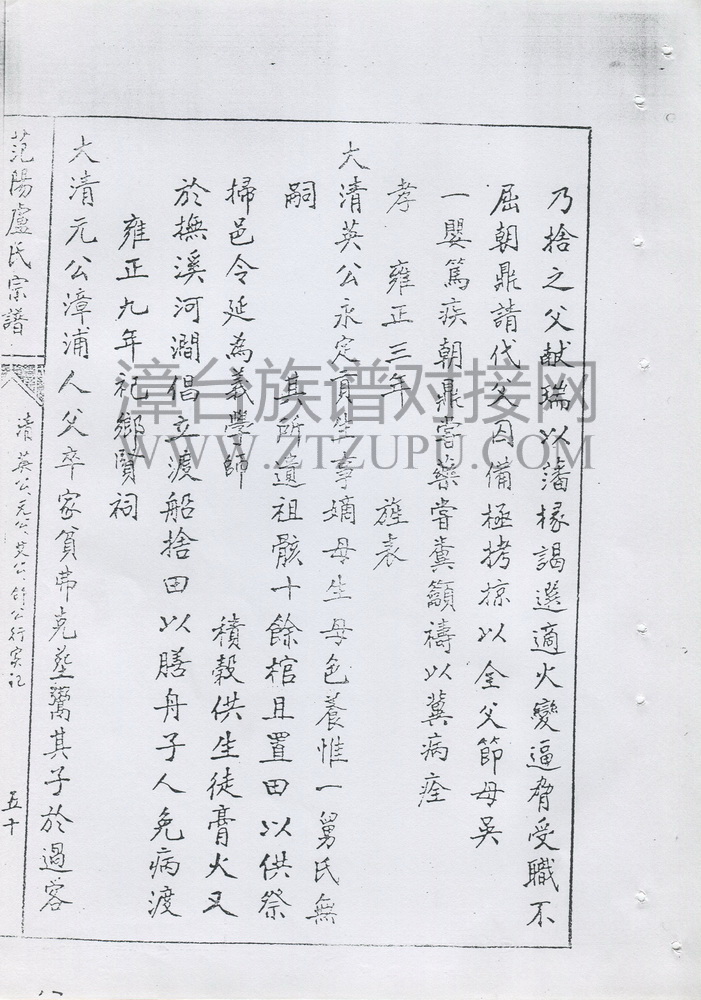 乃捨之父献瑞以藩椽謁選適火變逼脅受職不
屈朝鼎請代父囚備極拷掠以全父節母吳
一嬰篤疾朝鼎嘗藥嘗糞籲禱以冀病痊
孝 雍正三年 旌表
大清英公永定貢生事嫡母生母色養惟一舅氏無
嗣 其所遺祖骸十餘棺且置田以供祭
掃邑令延為義學師 積穀供生徒膏火又
於撫溪河澗倡立渡船捨田以膳舟子人免病渡
雍正九年祀鄉賢祠
大清元公漳浦人父卒家貧弗克塟鬻其子於過客
范陽盧氏宗譜
清英公元公 公 公行实记
五十
漳台族谱对接网
WWW.ZTZUPU.COM